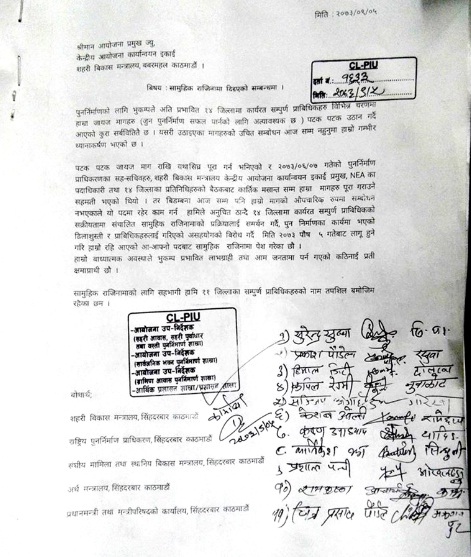 मिति : २०७३/०९/०५
श्रीमान आयोजना प्रमुख ज्यू
केन्द्रीय आयोजना कार्यान्वयन इकाई
शहरी बिकास मन्त्रालय, बबरमहल काठमाडौं ।
CL-PIU
दर्ता नं.: १६३३
मितिः २०७३/९/५
बिषय : सामुहिक राजिनामा दिइएको सम्बन्धमा ।
पुनर्निर्माणका लागि भुकम्पले अति प्रभावित १४ जिल्लामा कार्यरत सम्पुर्ण प्राबिधिकहरु विभिन्न चरणमा
हाम्रा जायज मागहरु (जुन पुनर्निर्माण सफल पार्नको लागि अत्यावस्यक छ ) पटक पटक उठान गर्दै
आएको कुरा सर्बबिदितै छ । यसरी उठाइएका मागहरुको उचित सम्बोधन आज सम्म नहुनुमा हाम्रो गम्भीर
ध्यानाकर्षण भएको छ ।
पटक पटक जायज माग राखि यथासिघ्र पुरा गर्न भनिएको र २०७३/०६/०७ गतेको पुनर्निर्माण
प्राधिकरणका सह-सचिवहरु, शहरी बिकास मन्त्रालय केन्द्रीय आयोजना कार्यान्वयन इकाई प्रमुख, NEA का
पदाधिकारी तथा १४ जिल्लाका प्रतिनिधिहरुको बैठकबाट कार्तिक मसान्त सम्म हाम्रा मागहरु पुरा गराउने
सहमती भएको थियो । तर बिडम्बना आज सम्म पनि हाम्रो मागको औपचारिक रुपमा सम्बोधन
नभएकाले यो पदमा रहेर काम गर्न हामिले अनुचित ठान्दै १४ जिल्लामा कार्यरत सम्पुर्ण प्राबिधिकको
सक्रीयतामा संचालित सामुहिक राजिनामाको प्रक्रियालाई समर्थन गर्दै, पुन निर्माणका कार्यमा भएको
ढिलासुस्ती र प्राबिधिकहरुलाई गरिएको असहयोगको बिरोध गर्दै मिति २०७३ पौष ५ गतेबाट लागू हुने
गरि हाम्रो रहि आएको आ-आफ्नो पदबाट सामुहिक राजिनामा पेश गरेका छौं ।
हाम्रो बाध्यात्मक अवस्थाले भुकम्प प्रभावित लाभग्राही तथा आम जनतामा पर्न गएको कठिनाई प्रती
क्षमाप्रार्थी छौं ।
सामुहिक राजिनामाको लागि सहभागी हामि ११ जिल्लाका सम्पुर्ण प्राबिधिकहरुको नाम तपशिल बमोजिम
रहेका छन ।
CL-PIU
-आयोजना उप-निर्देशक
(शहरी आवास, शहरी पुर्वाधार
तथा वस्ती पुनर्निर्माण शाखा)
-आयोजना उप-निर्देशक
(सार्वजनिक भवन पुनर्निर्माण शाखा)
-आयोजना उप-निर्देशक
(ग्रामिण आवास पुनर्निर्माण शाखा)
-आर्थिक प्रशासन शाखा/प्रशासन शाखा
बोधार्थ:
शहरी बिकास मन्त्रालय, सिंहदरबार काठमाडौं
राष्ट्रिय पुनर्निर्माण प्राधिकरण, सिंहदरबार काठमाडौं
संघीय मामिला तथा स्थानिय बिकास मन्त्रालय, सिंहदरबार काठमाडौं
अर्थ मन्त्रालय, सिंहदरबार काठमाडौं
प्रधानमन्त्री तथा मन्त्रीपरिषदको कार्यालय, सिंहदरबार काठमाडौं